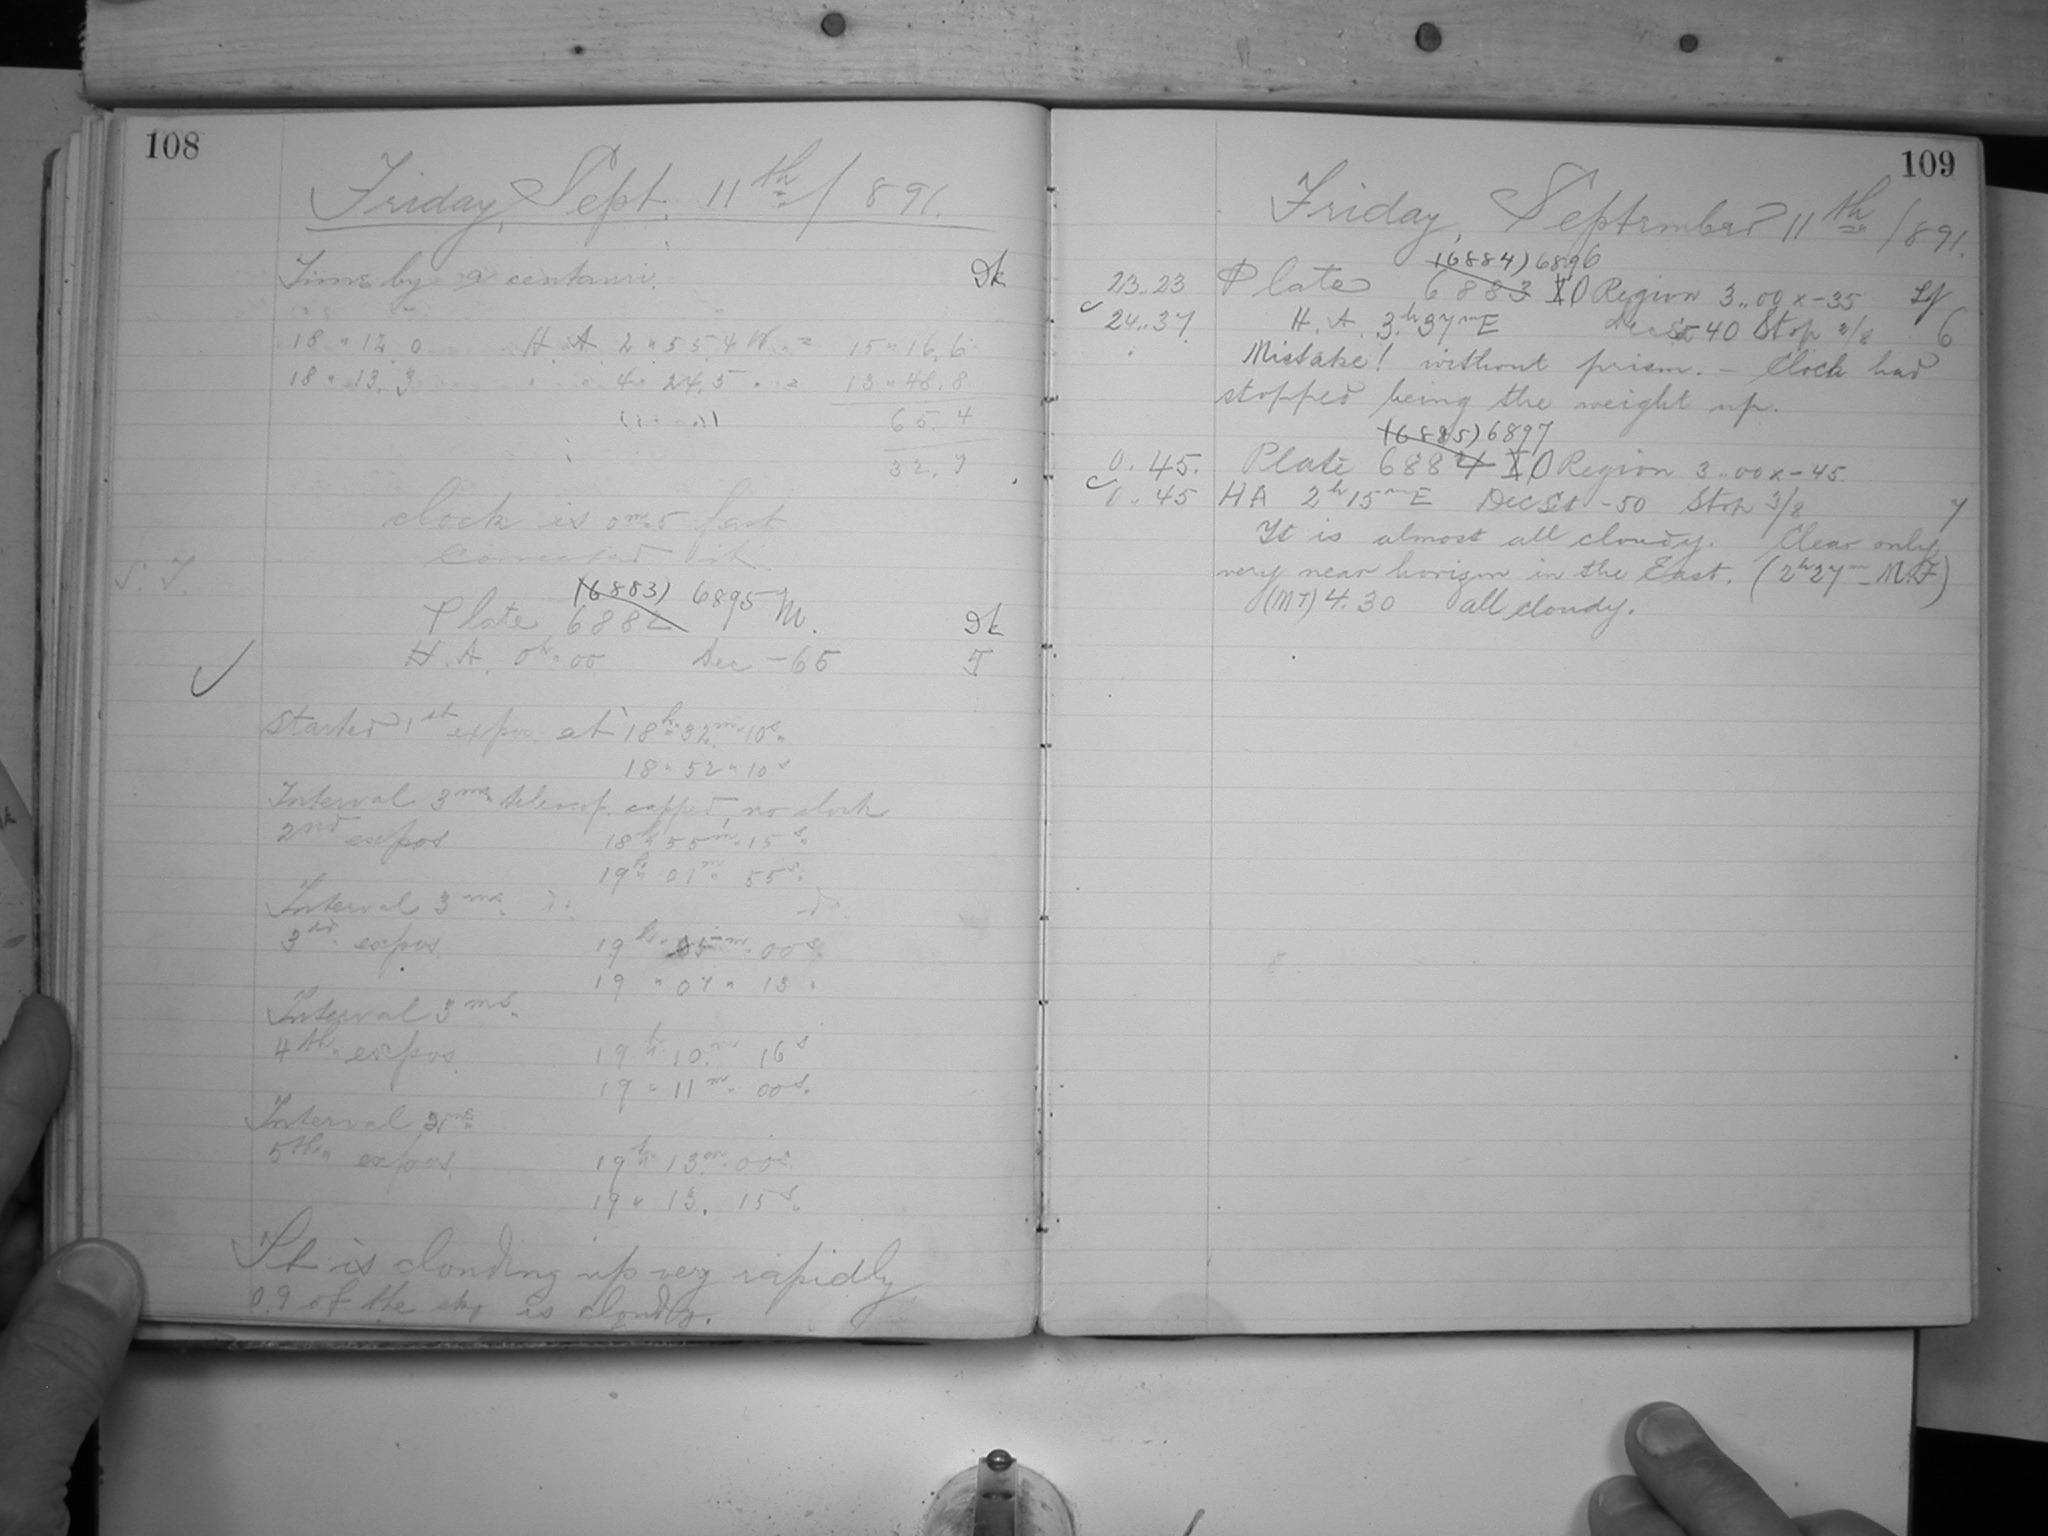 108
Friday, Sept. 11th 1891.
Time by α centauri. Dk
18 " 12.0 H. A. 2 " 55.4 W. = 15 " 16.6
18 " 13.3 " " 4 " 24.5 " = 13 " 48.8
65.4
32.7
clock is 0m.5 fast
corrected it.
S. T.
(6883) 6895 M.
Plate 6882 Dk
H. A. 0h " 00 Dec - 65 5
Started 1st expos. at 18h " 32m " 10s.
18 " 52 " 10s
Interval 3ms. telescop. capped, no clock
2nd expos 18h 55m. 15s.
19h " 01m 55s.
Interval 3ms.
3rd. expos 19h. 05m. 00s.
19 " 07 " 13.
Interval 3ms.
4th. expos 19h 10m 16s
19 " 11m. 00s.
Interval 2ms
5th. expos. 19h 13m. 00s.
19 " 13. 15s.
It is clouding up very rapidly
0.9 of the sky is cloudy.
109
Friday, September 11th 1891.
(6884) 6896
23..23 Plate 6883 X D Region 3..00 x -35
24..37 H. A. 3.h 37m E Dec Set 40 Stop 3/8 6
Mistake! without prism. - Clock had
stopped being the weight up.
(6885) 6897
0. 45. Plate 6884 X D Region 3..00 x -45.
1. 45 HA 2h 15m E Dec Set -50 Stop 3/8 7
It is almost all cloudy. Clear only
very near horizon in the East. (2h 27m M.T)
(MT) 4.30 all cloudy.